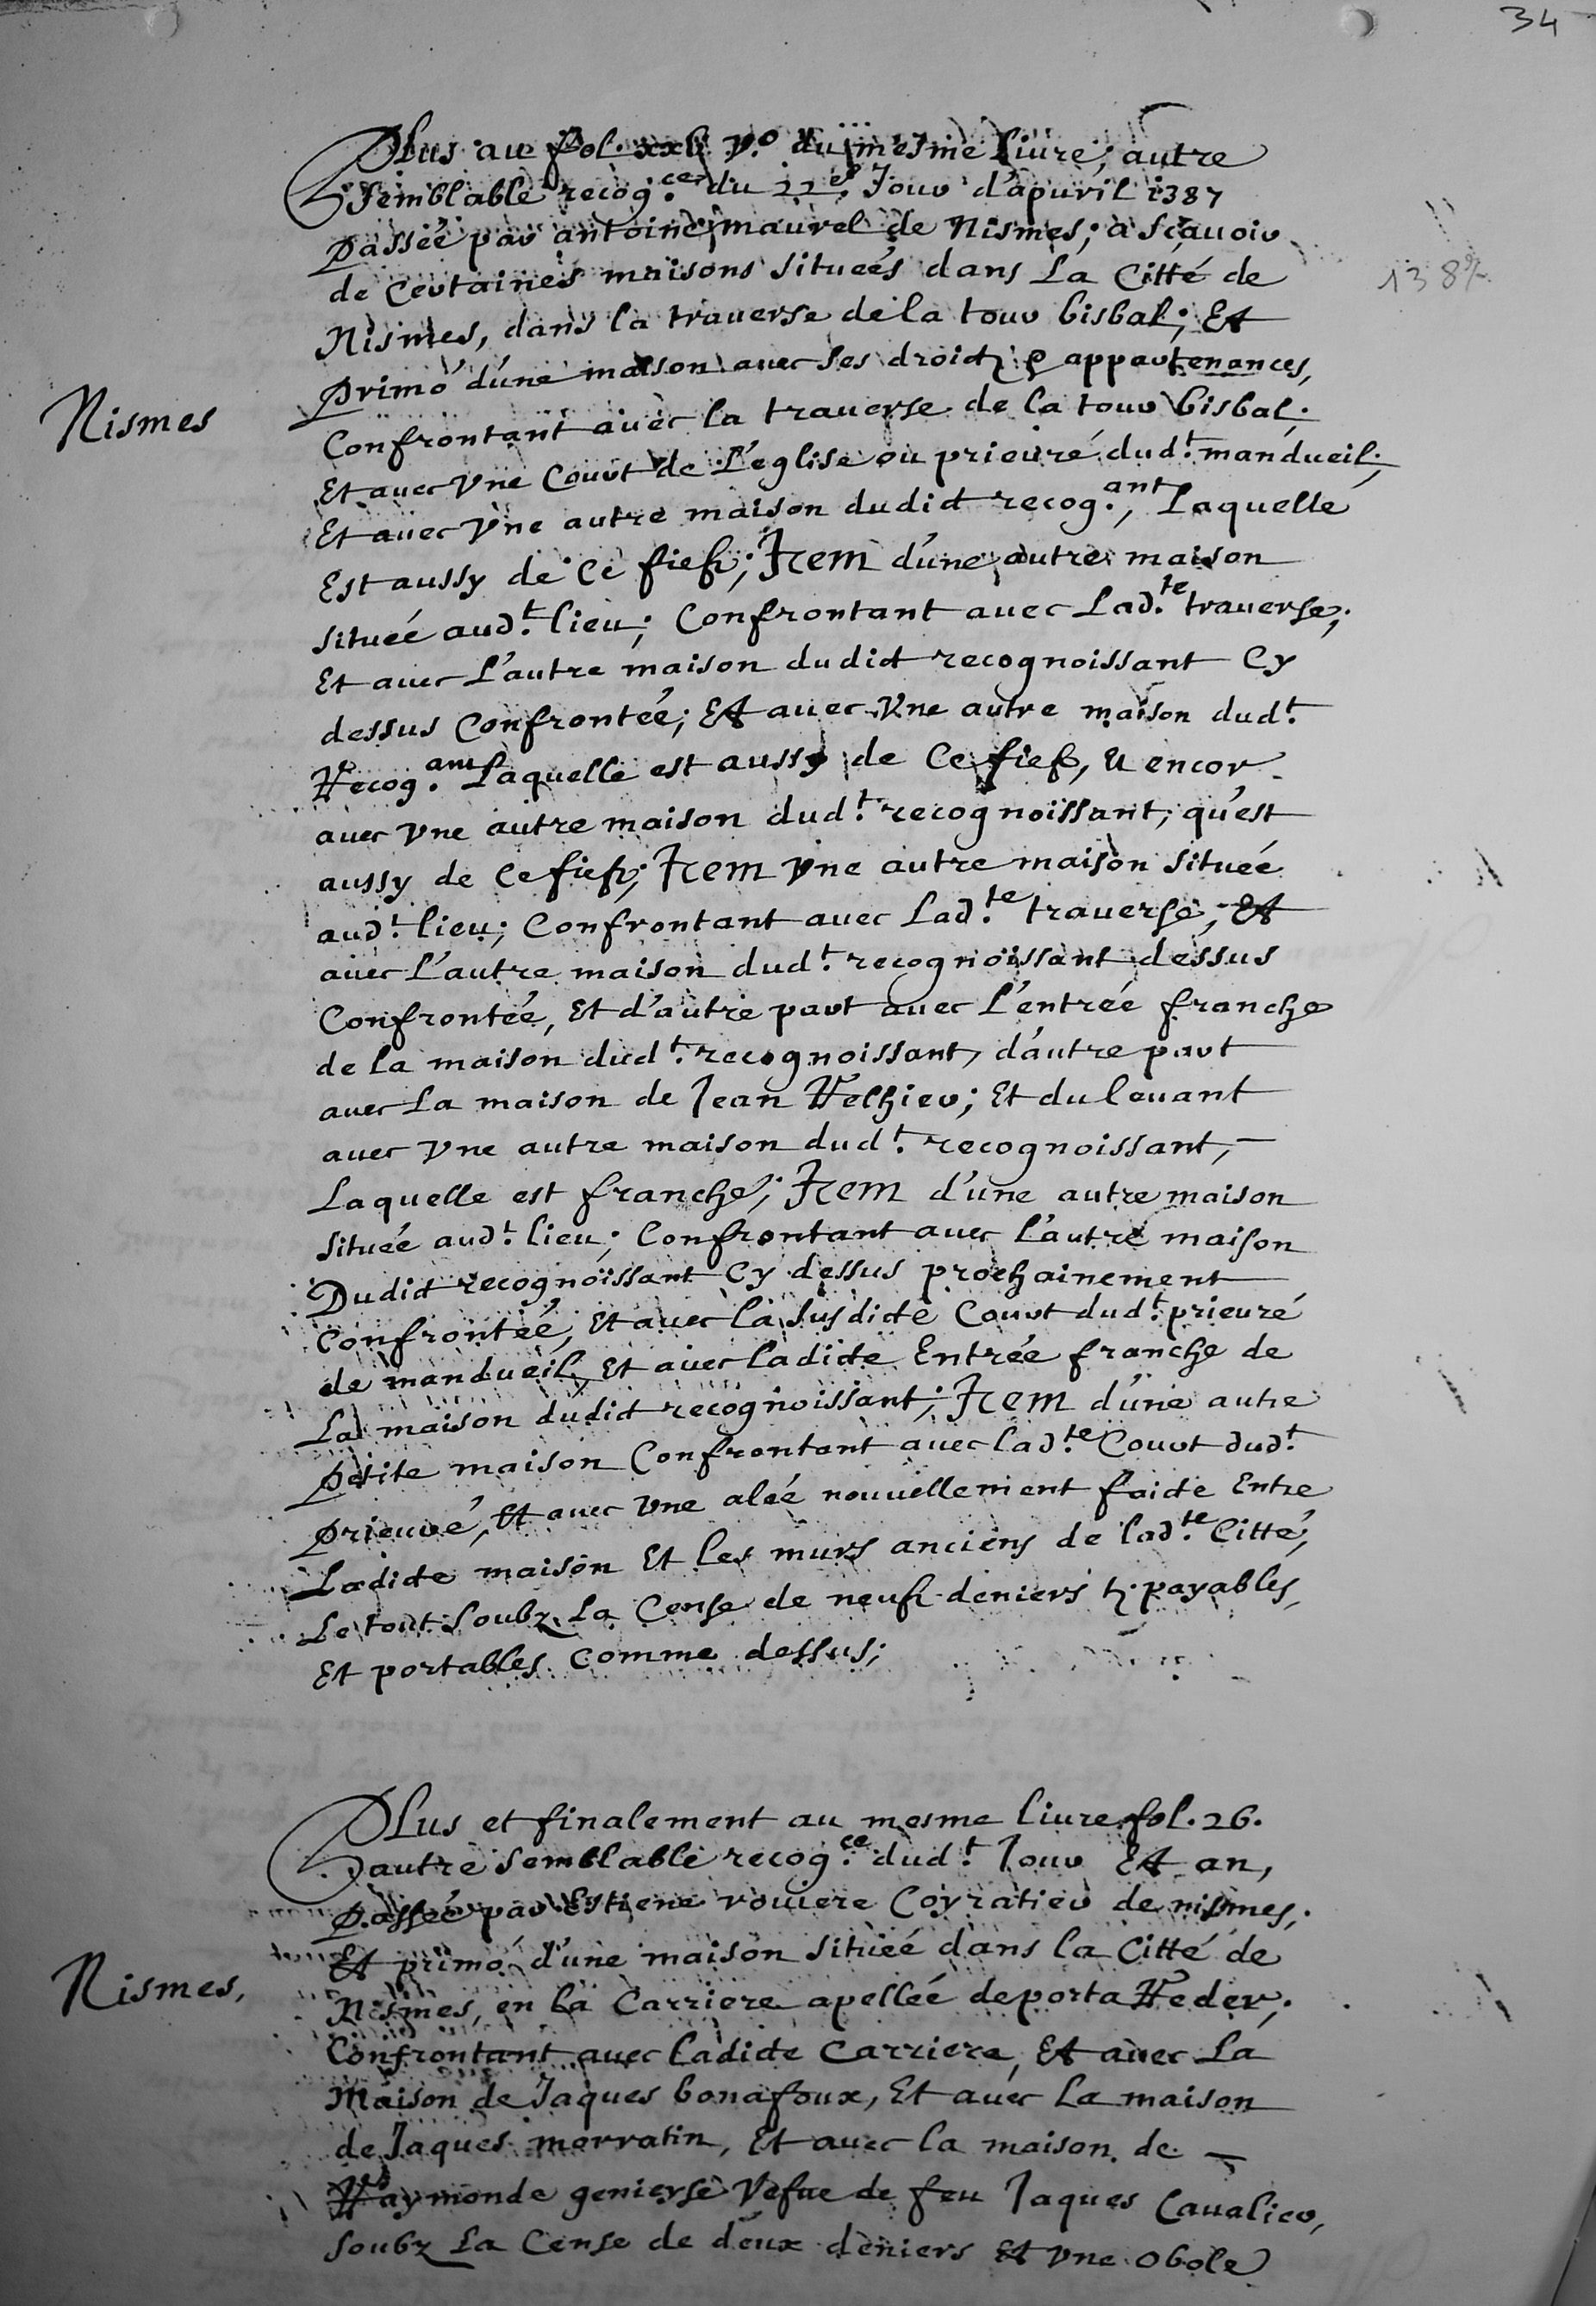 34
Plus au fol. xxv v.o du mesme liure, autre
semblable recog.ce du 22e Jour d'apuril 1387
passée par antoine maurel de Nismes; a sçauoir
138
de certaines maisons situeés dans La Citté de
Nismes, dans la trauerse de la tour bisbal; Et
primo d'une maison auec ses droictz & appartenances,
Nismes
Confrontant auec la trauerse de la tour bisbal;
Et auec Vne Court de L'eglise ou prieuré dud.t mandueil;
Et auec Vne autre maison dudict recog.ant, Laquelle
Est aussy de Ce fief; Item d'une autre maison
situeé aud.t lieu; Confrontant auec Lad.te trauerse;
Et auec L'autre maison dudict recognoissant Cy
dessus Confrontée; Et auec Vne autre maison dud.t
Recog.ant Laquelle est aussy de Ce fief, Et encor
auec Vne autre maison dud.t recognoissant, qu'est
aussy de Ce fief; Item Vne autre maison situeé
aud.t lieu; Confrontant auec Lad.te trauerse; Et
auec L'autre maison dud.t recognoissant dessus
Confrontée, Et d'autre part auec L'entrée franche
de la maison dud.t recognoissant, d'autre part
auec La maison de Jean Relhier; Et du leuant
auec Vne autre maison dud.t recognoissant,
Laquelle est franche; Item d'une autre maison
situeé aud.t lieu; Confrontant auec L'autre maison
Dudict recognoissant Cy dessus prochainement
Confrontée, Et auec la susdicte Court dud.t prieuré
de mandueil, Et auec ladicte Entrée franche de
La maison dudict recognoissant; Item d'une autre
petite maison Confrontant auec lad.te Court dud.t
prieuré, Et auec Vne aleé nouuellement faicte Entre
Ladicte maison Et les murs anciens de lad.te Citté,
Le tout soubz La Cense de neuf deniers t. payables,
Et portables Comme dessus;
Plus et finalement au mesme liure fol. 26.
autre semblable recog.ce dud.t Jour Et an,
passée par Estiene rouiere Coyratier de nismes;
Et primo d'une maison situeé dans la Citté de
Nismes,
Nismes, en la Carriere apelleé de porta Veder;
Confrontant auec ladicte Carriere, Et auec La
Maison de Jaques bonafoux, Et auec la maison
de Jaques marratin, Et auec la maison de
Raymonde genieyse Vefue de feu Jaques Caualier,
soubz La Cense de deux deniers Et Vne obole